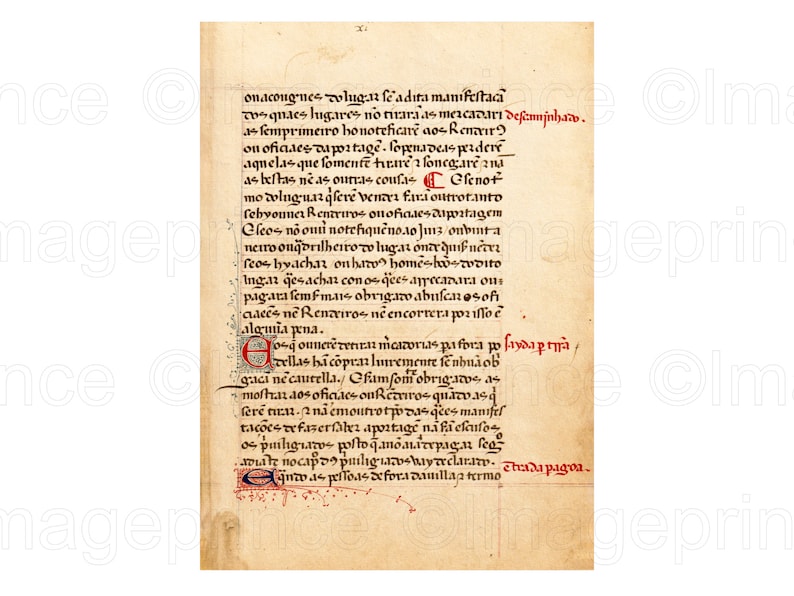 xi
ou açougues do lugar sẽ a dita manifestacã
dos quaes lugares nõ tirarã as mercadari
as sem primeiro ho notificarẽ aos Rendeirꝰ
ou oficiaes da portagẽ. so pena de as perderẽ
aquelas que somente tirarẽ ⁊ sonegarẽ ⁊ nã
as bestas nẽ as outras cousas E se no t̃
mo do luguar q̃ serẽ vender farã outro tanto
se hy ouuer Rendeiros ou oficiaes da portagem
E se os nõ ouũ notefiquẽ no ao Juiz ou vinta
neiro ou q̃drilheiro do lugar onde
se os hy achar ou ha dous homẽs bõs do dito
lugar q̃ os achar con os q̃es arrecadara ou
pagara sem mais obrigado a buscar os ofi
ciaees nẽ Rendeiros nẽ encorrera por isso ẽ
algũa pena.
Eos q̃ ouuerẽ de tirar m̃cadorias pa fora po
dellas hã comprar liuremente sẽ nhũa obˢ
gacã nẽ cautella. / E sam somẽte obrigados as
mostrar aos oficiaes ou Rendeiros quãdo as q̃
serẽ tirar. ⁊ nã ẽ m outro tp̃o das q̃es manifes
tacões de fazer saber a portagẽ nã sã escusos
os p̃uiligiados posto q̃ a nõ aiã de pagar segũ
adiãte no cap̃o dos p̃uiligiados vay declarado.
Quãdo as pessoas de fora da villa ⁊ termo
descaminhado.
sayda per terra
ẽtrada p agoa.
©Imageprince